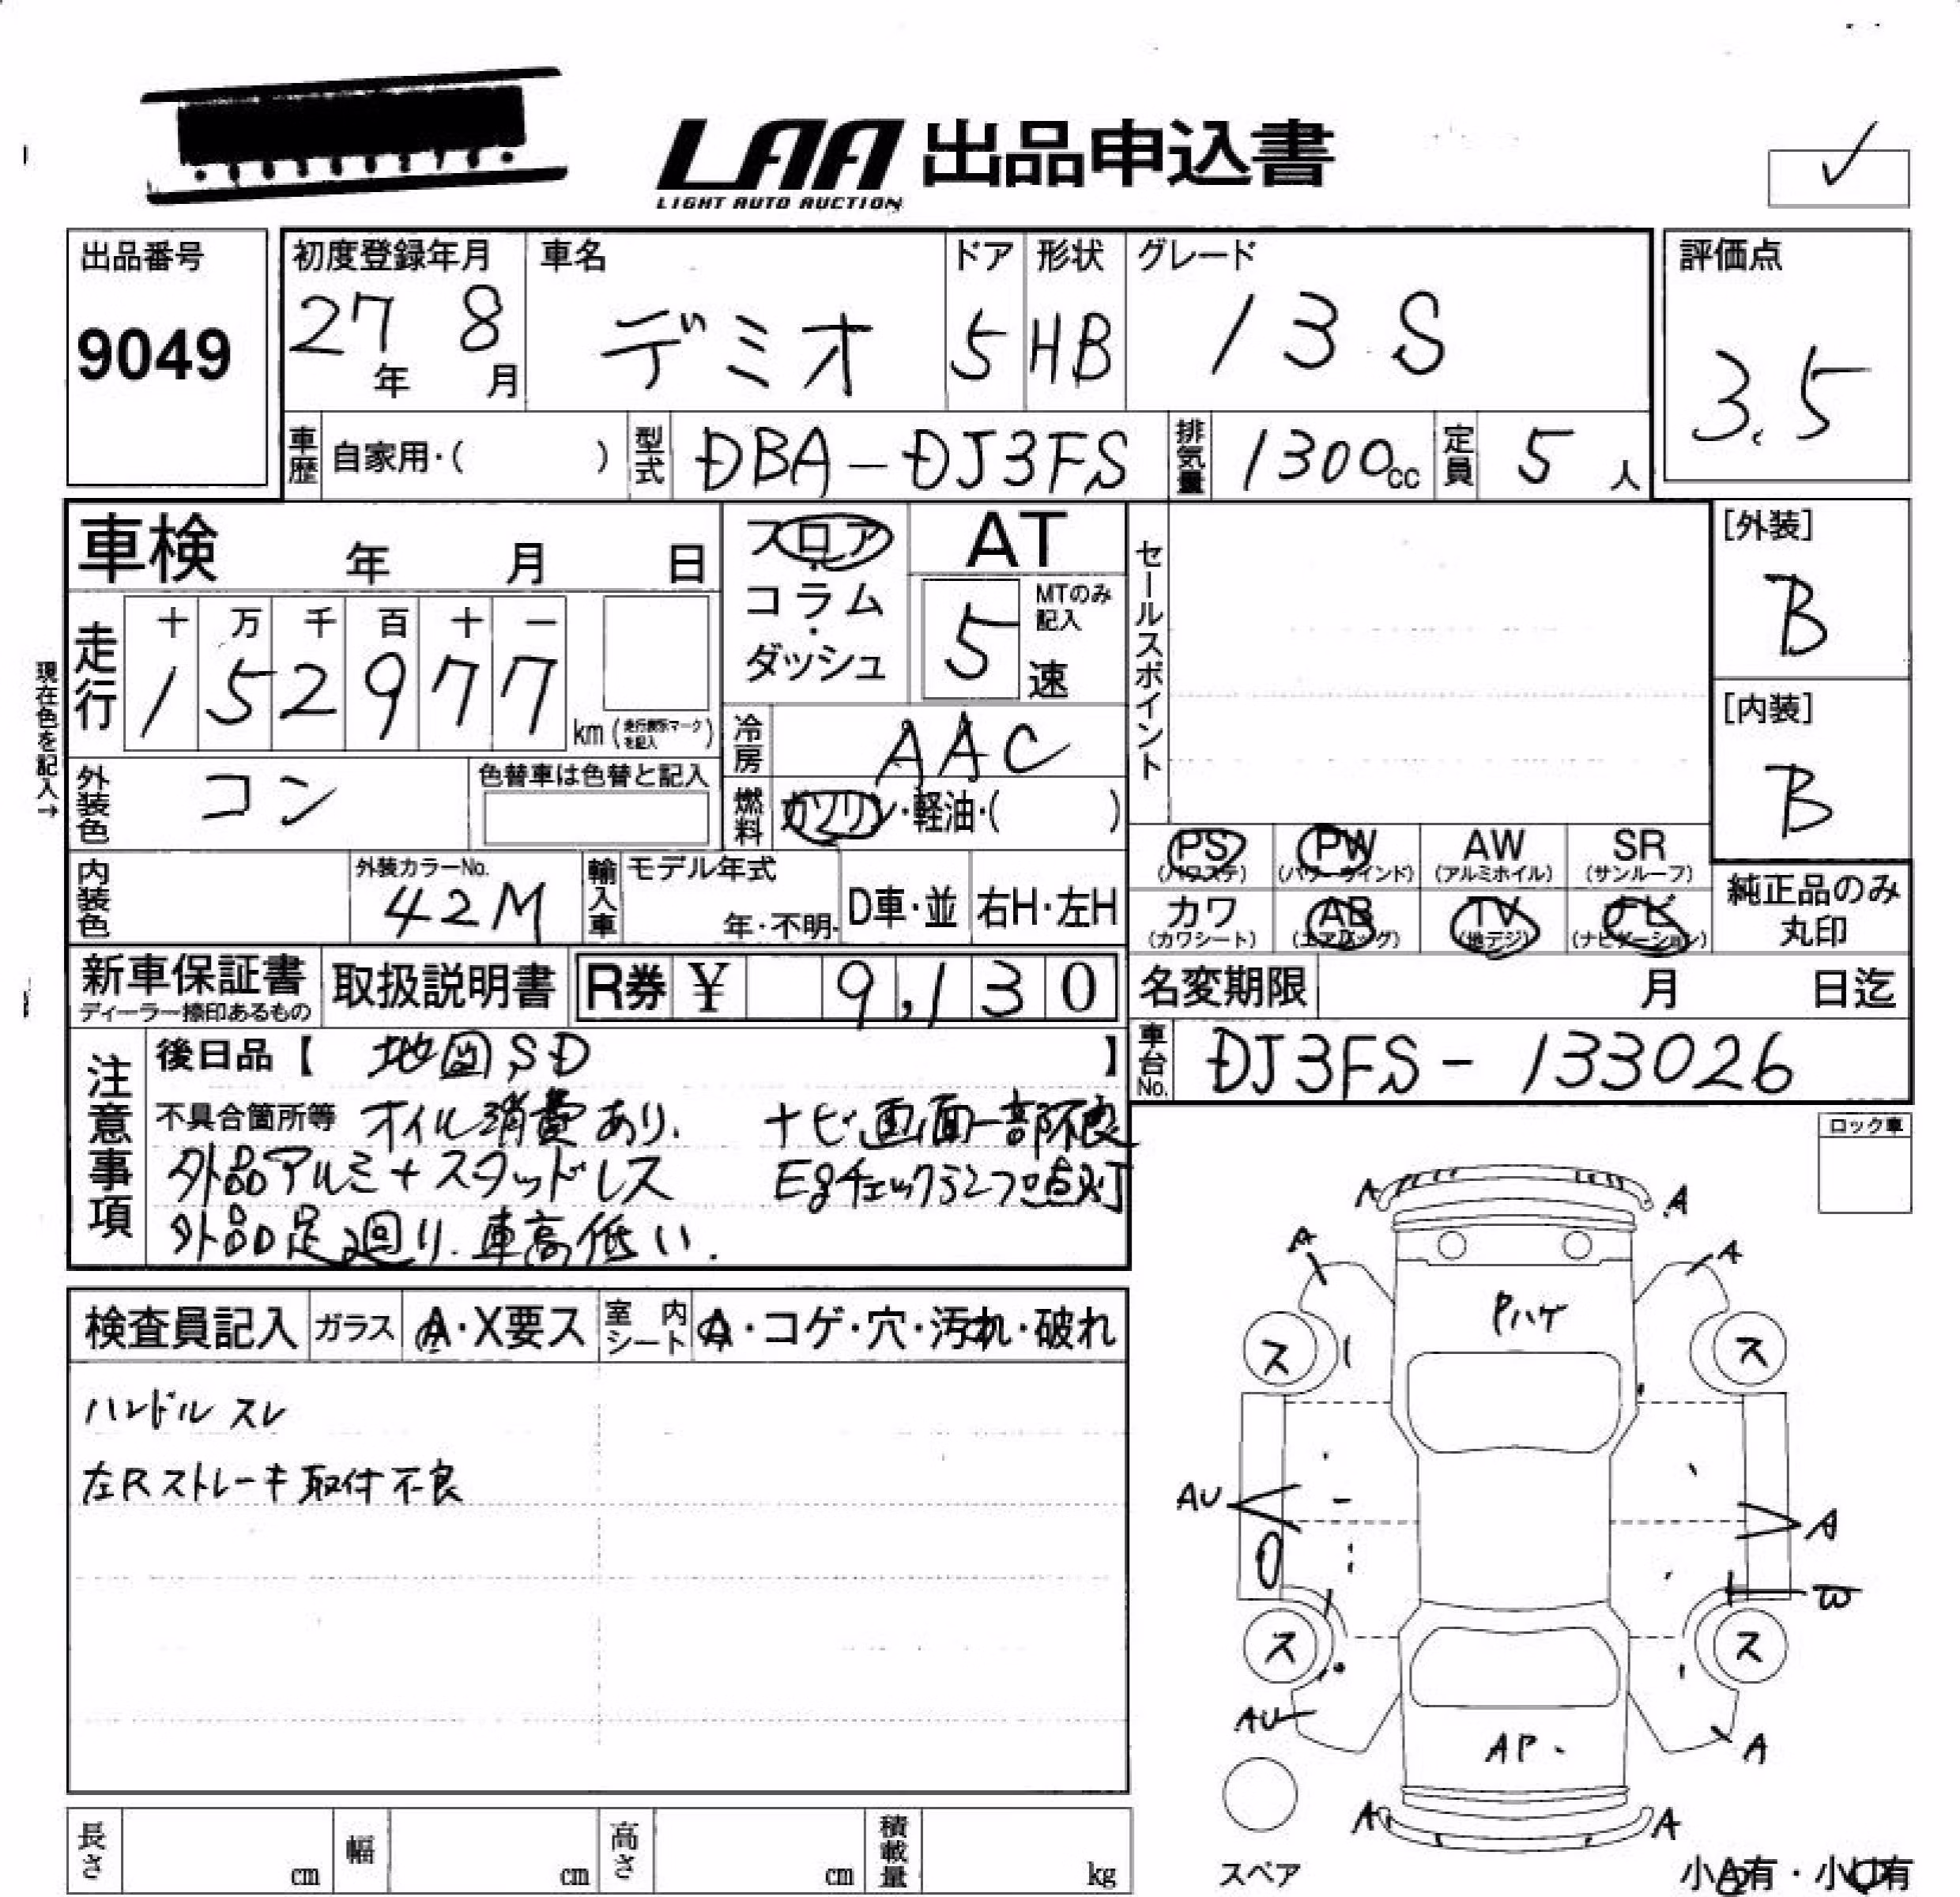 LAA 出品申込書
LIGHT AUTO AUCTION
✓
出品番号
9049
初度登録年月
27年 8月
車名
デミオ
ドア
5
形状
HB
グレード
13S
評価点
3.5
車歴 自家用・( )
型式 DBA-DJ3FS
排気量 1300cc
定員 5人
車検 年 月 日
フロア・コラム・ダッシュ
AT
5速
MTのみ記入
セールスポイント
[外装]
B
[内装]
B
現在色を記入→
走行 十 万 千 百 十 一
1 5 2 9 7 7 km (走行距離マークを記入)
冷房 AAC
外装色 コン
色替車は色替と記入
燃料 ガソリン・軽油・( )
PS (パワステ)
PW (パワーウインド)
AW (アルミホイル)
SR (サンルーフ)
内装色
外装カラーNo. 42M
輸入車
モデル年式 年・不明・
D車・並
右H・左H
カワ (カワシート)
AB (エアバッグ)
TV (地デジ)
ナビ (ナビゲーション)
純正品のみ丸印
新車保証書
ディーラー捺印あるもの
取扱説明書
R券 ¥ 9,130
名変期限 月 日迄
車台No. DJ3FS-133026
注意事項
後日品【 地図SD 】
不具合箇所等 オイル消費あり. ナビ画面一部不良
外品アルミ+スタッドレス Egチェックランプ点灯
外品足廻り.車高低い.
ロック車
検査員記入
ガラス A・X要ス
室内シート A・コゲ・穴・汚れ・破れ
ハンドルスレ
左Rストレーキ取付不良
A A
A A
Pハゲ
ス ス
AU A
W
ス ス
AU A
AP.
A A
スペア
小A有・小U有
長さ cm
幅 cm
高さ cm
積載量 kg